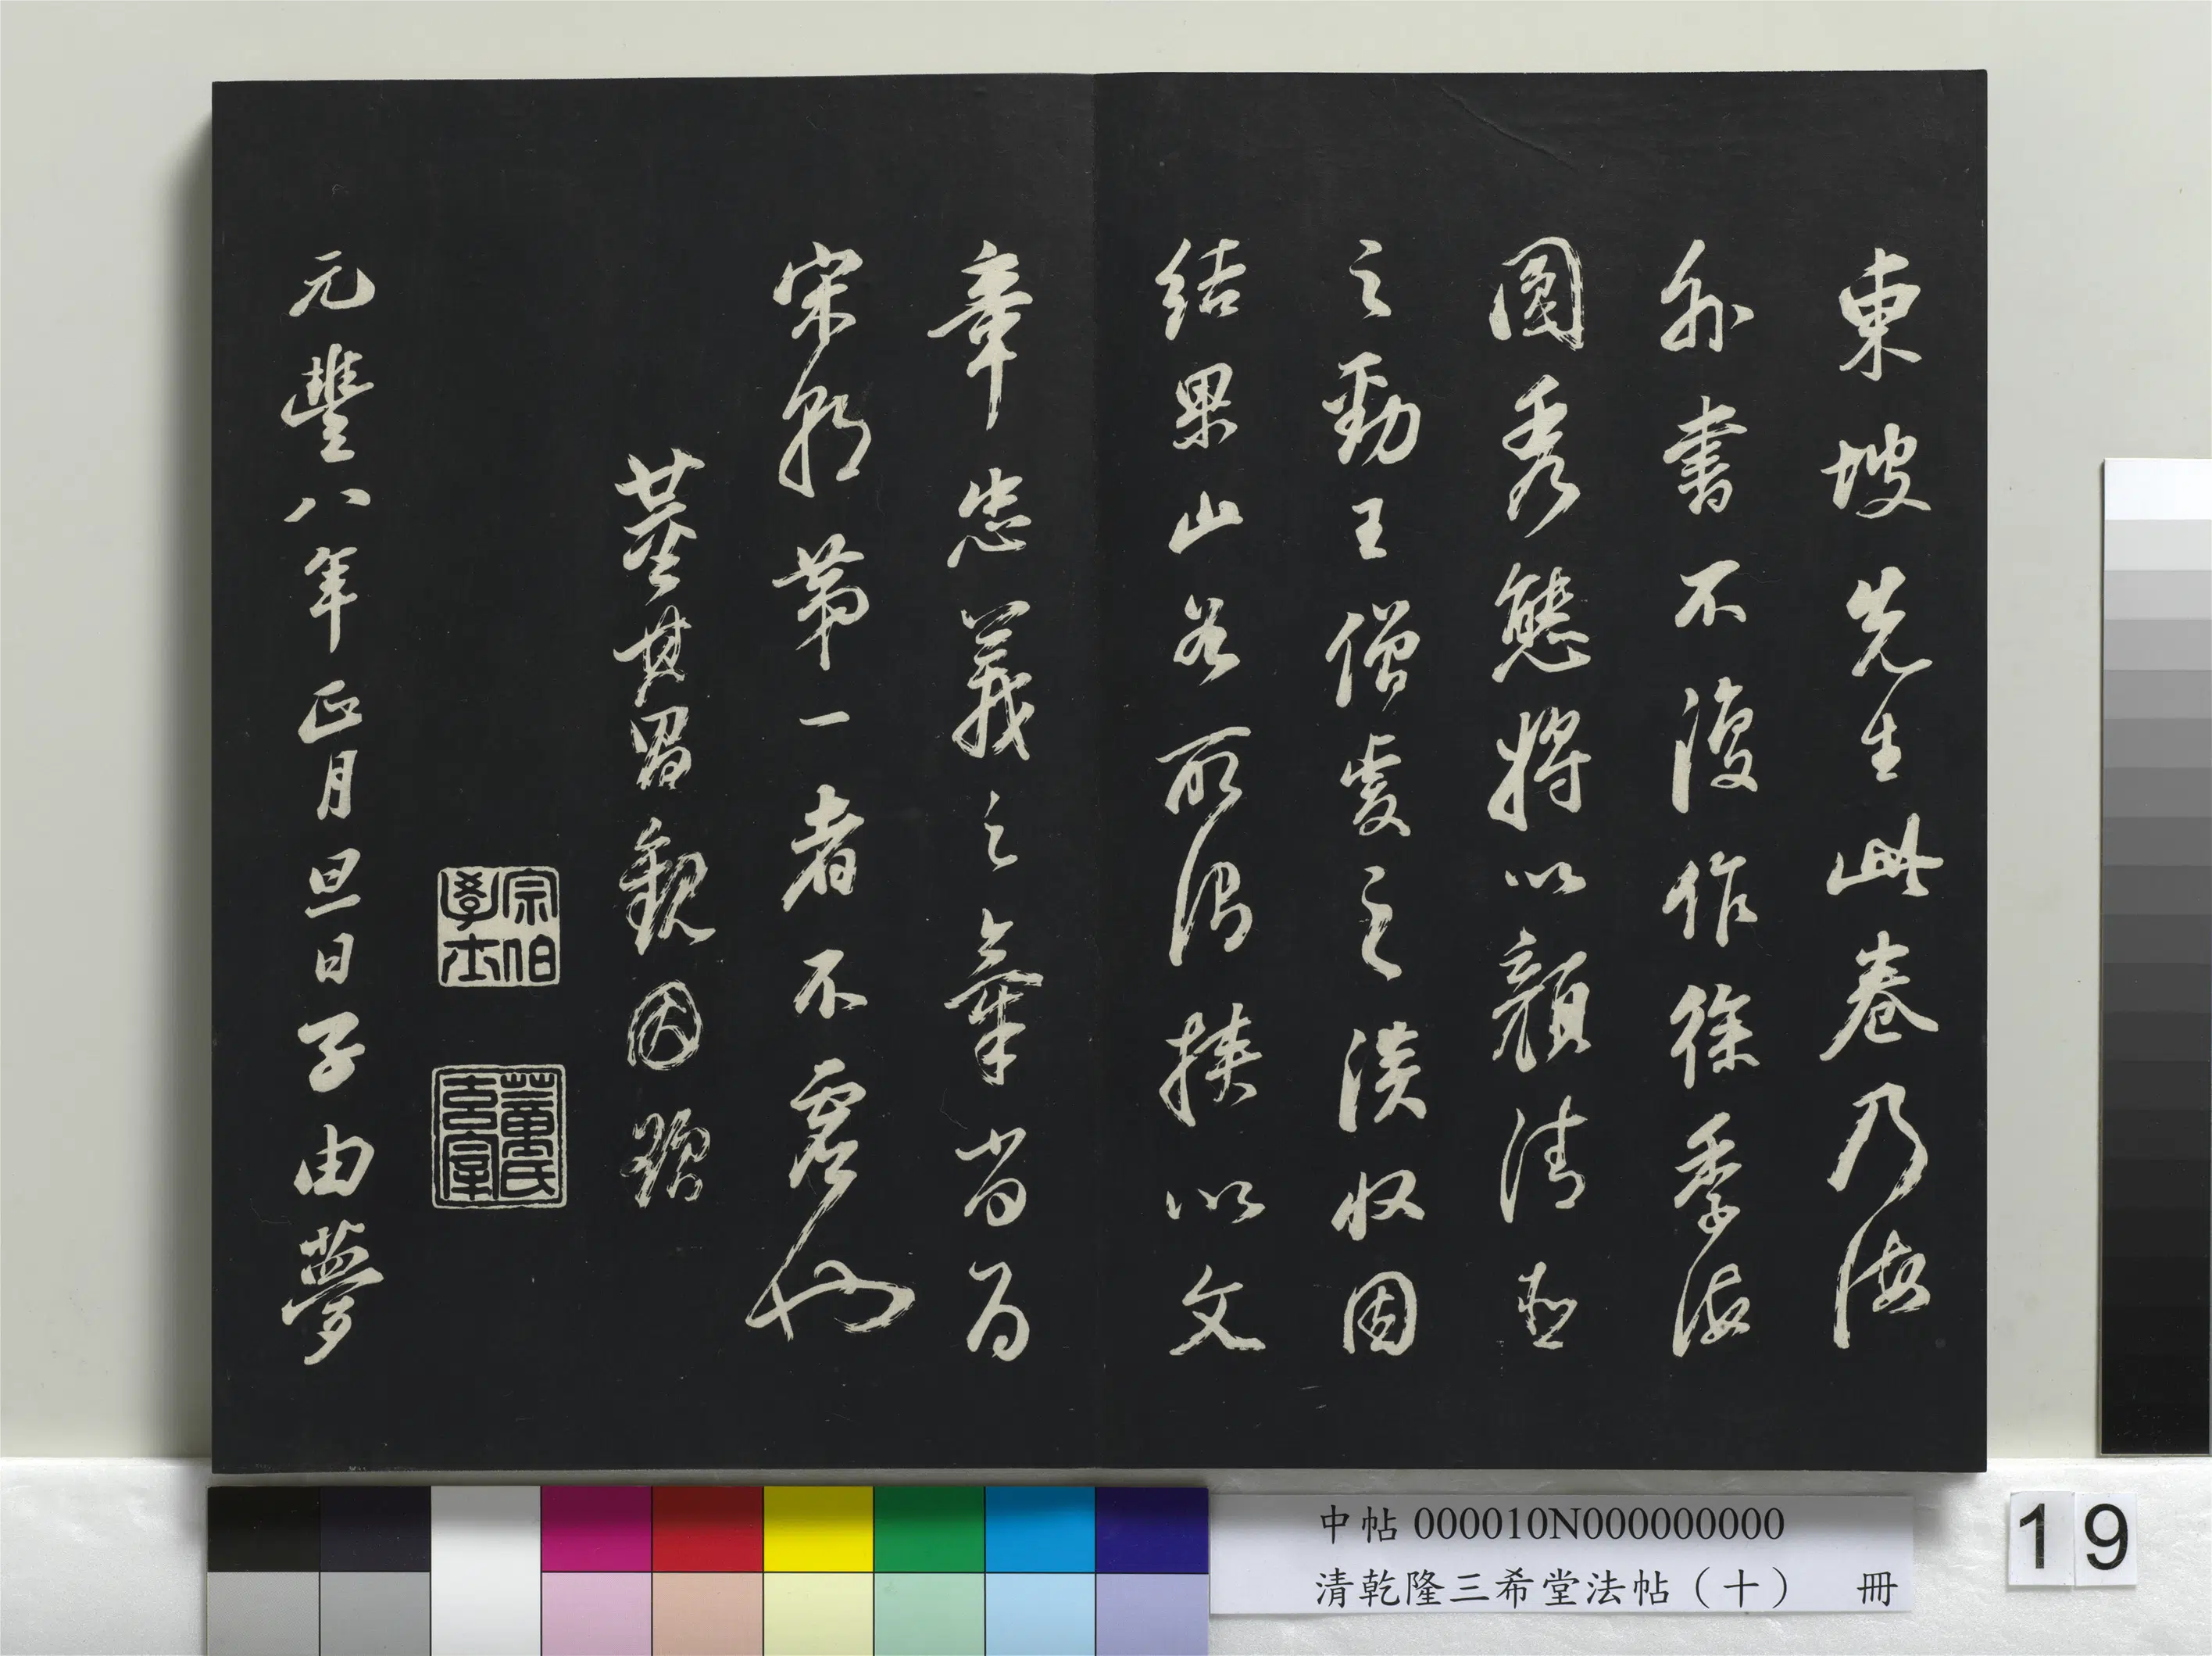 東坡先生此卷乃海
外書不復作徐季海
圓秀態將以顏清臣
之勁王僧虔之淡收因
結果山谷所謂挾以文
章忠義之氣當為
宋朝第一者不虛也
董其昌觀因題
宗伯學士
董氏玄宰
元豐八年正月旦日子由夢
中帖 000010N000000000
清乾隆三希堂法帖（十） 冊
19